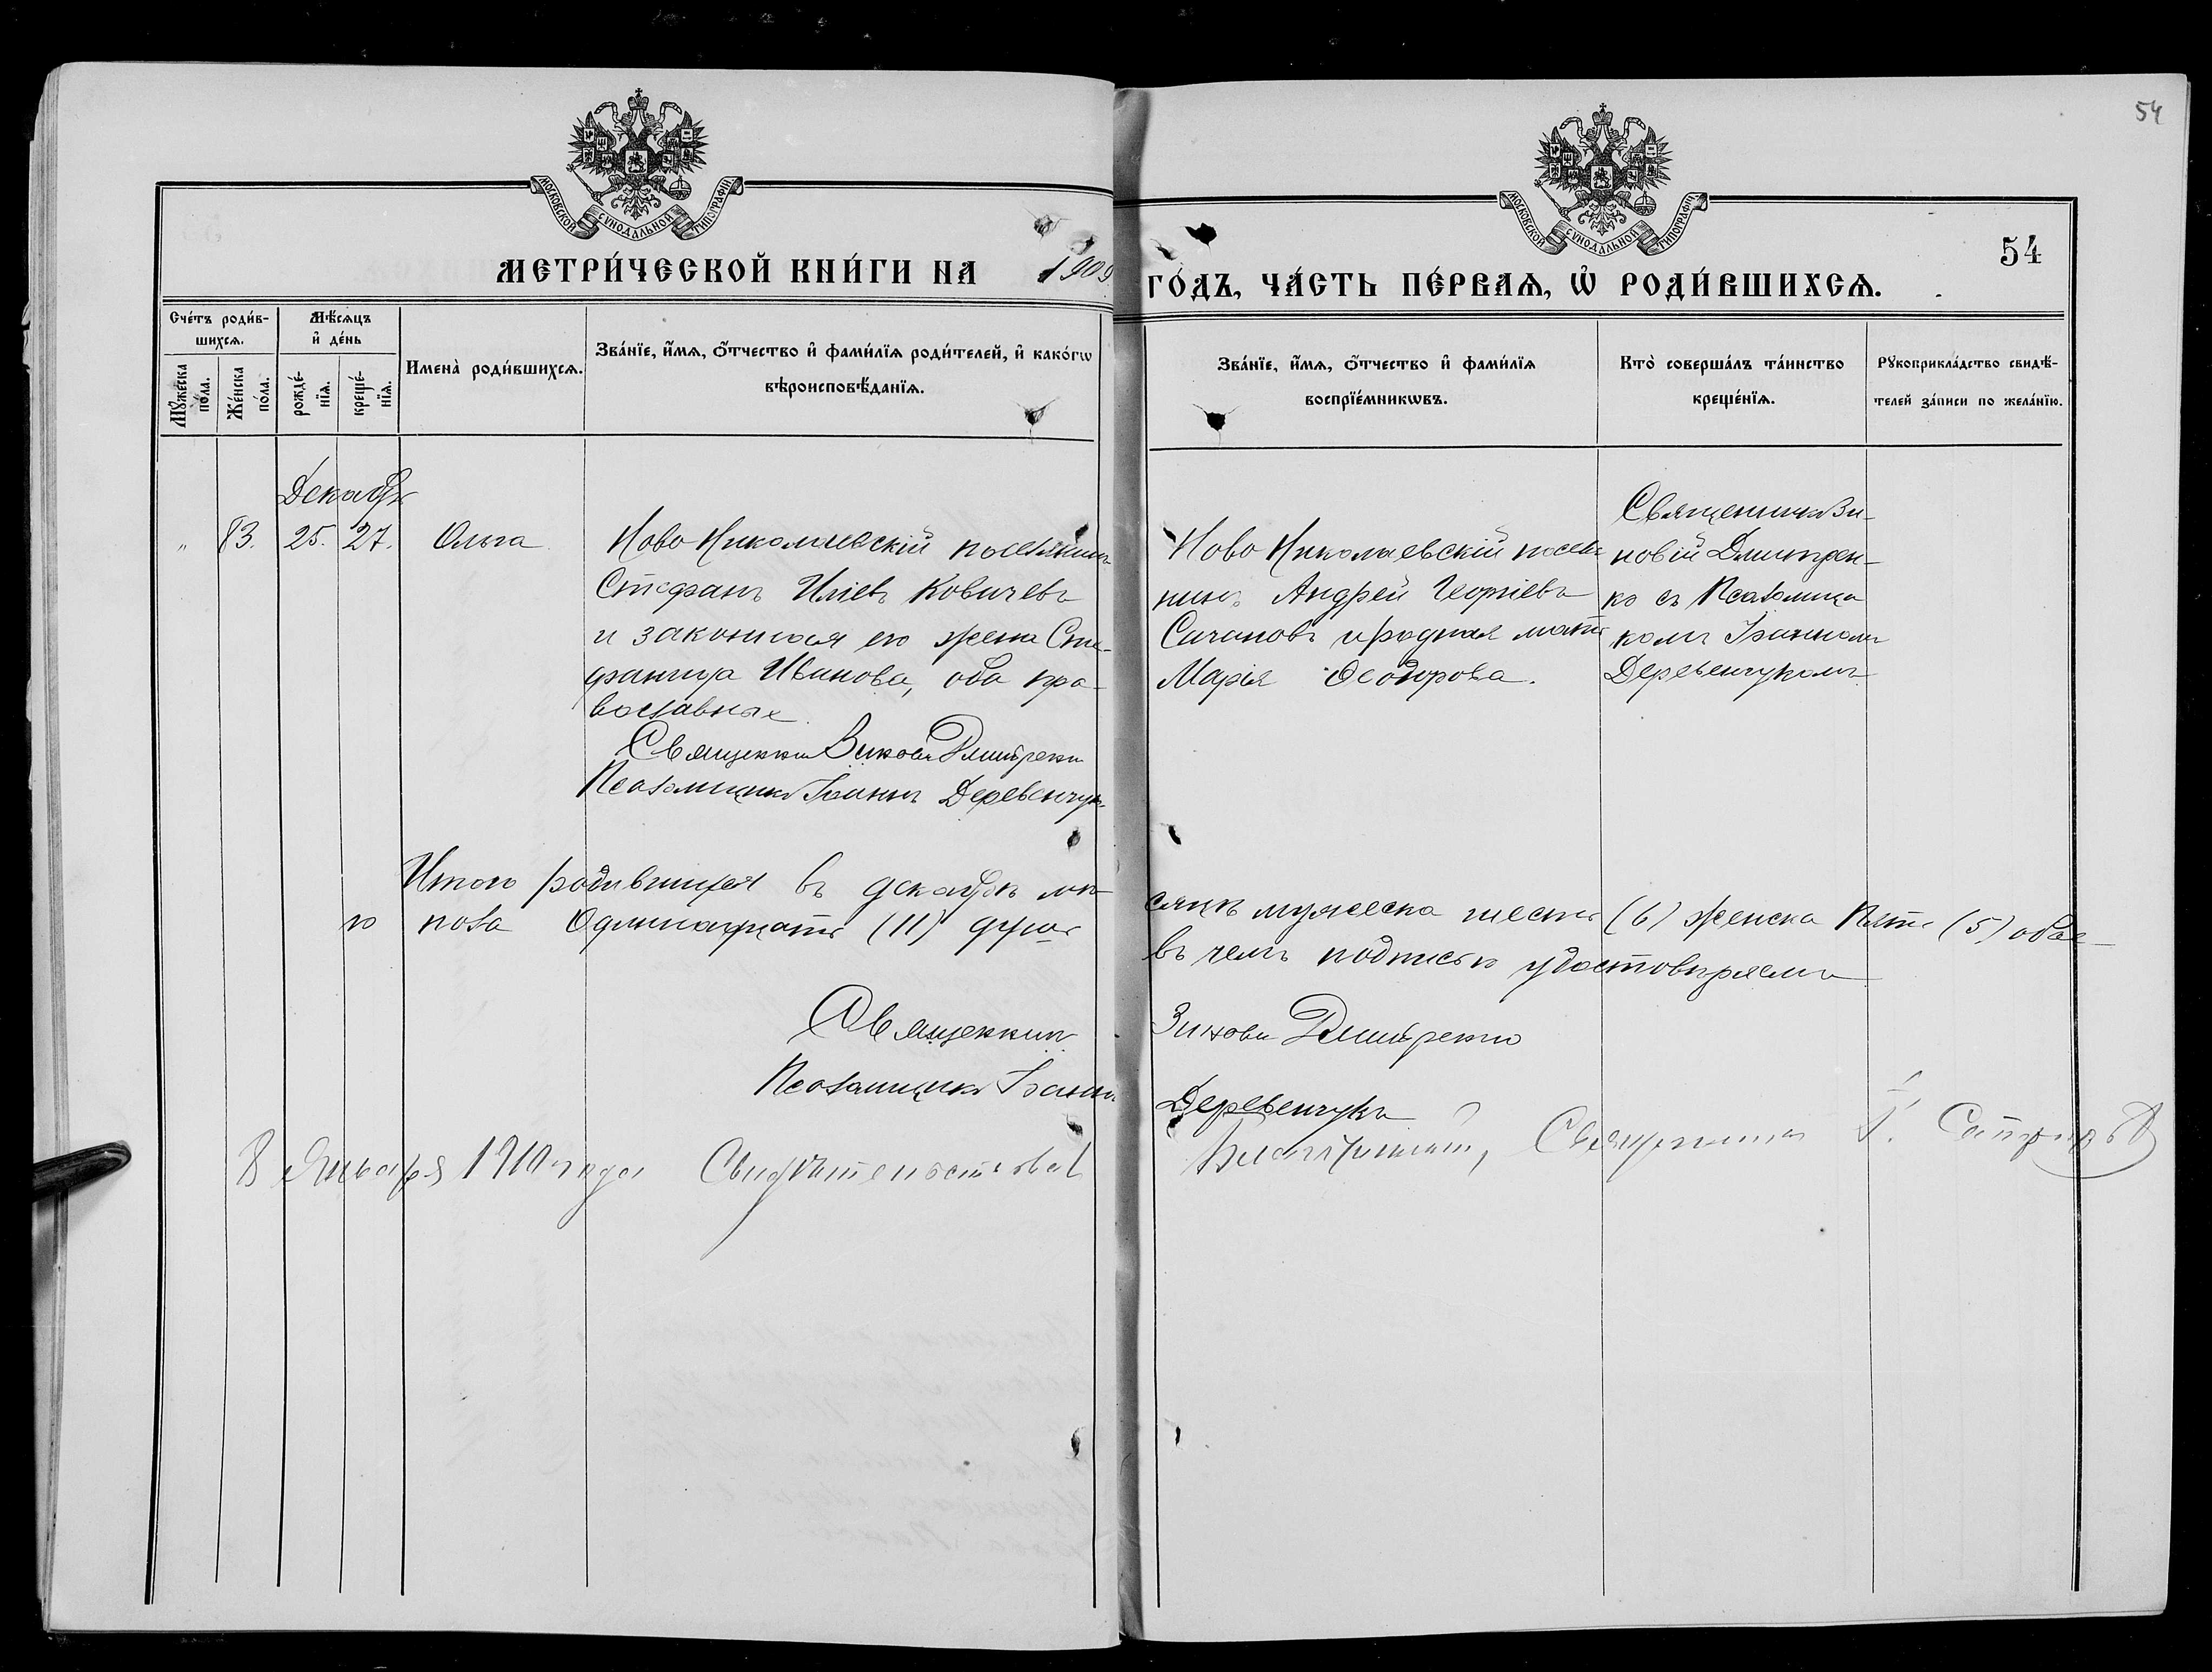 54
МОСКОВСКОЙ СѴНОДАЛЬНОЙ ТИПОГРАФІИ.
МОСКОВСКОЙ СѴНОДАЛЬНОЙ ТИПОГРАФІИ.
54
МЕТРИ́ЧЕСКОЙ КНИ́ГИ НА 1909 ГО́ДЪ, ЧА́СТЬ ПЕ́РВАѦ, Ѡ҆ РОДИ́ВШИХСѦ.
Сче́тъ роди́в-
шихсѧ.
Мꙋ́жеска по́ла.
Же́нска по́ла.
Мѣ́сѧцъ
и҆ де́нь
рожде́-
нїѧ.
креще́-
нїѧ.
Имена̀ роди́вшихсѧ.
Зва́нїе, и҆́мѧ, ѻ҆́тчество и҆ фами́лїѧ роди́телей, и҆ како́гѡ
вѣроисповѣ́данїѧ.
Зва́нїе, и҆́мѧ, ѻ҆́тчество и҆ фами́лїѧ
воспрїе́мникѡвъ.
Кто̀ соверша́лъ та́инство
креще́нїѧ.
Рꙋкоприкла́дство свидѣ́-
телей за́писи по жела́нїю.
Декабрь
" 83. 25. 27. Ольга
Ново Николаевскій поселянинъ
Стефанъ Иліевъ Ковичевъ
и законная его жена Сте-
фанида Иванова, оба пра-
вославные.
Священникъ Зиновій Дмитренко
Псаломщикъ Іоаннъ Деревенчукъ
Ново Николаевскій поселя
нинъ Андрей Георгіевъ
Сичановъ и родная мать
Марія Ѳеодорова.
Священникъ Зи-
новій Дмитрен-
ко съ Псаломщи
комъ Іоанномъ
Деревенчукомъ
Итого родившихся въ декабрѣ мѣ-
сяцѣ мужеска шесть (6) женска пять (5) обое-
го пола Одиннадцать (11) душъ
въ чемъ подписью удостовѣряемъ
Священникъ Зиновій Дмитренко
Псаломщикъ Іоаннъ Деревенчукъ
8 Января 1910 года Свидѣтельствовалъ
Благочинный, Священникъ